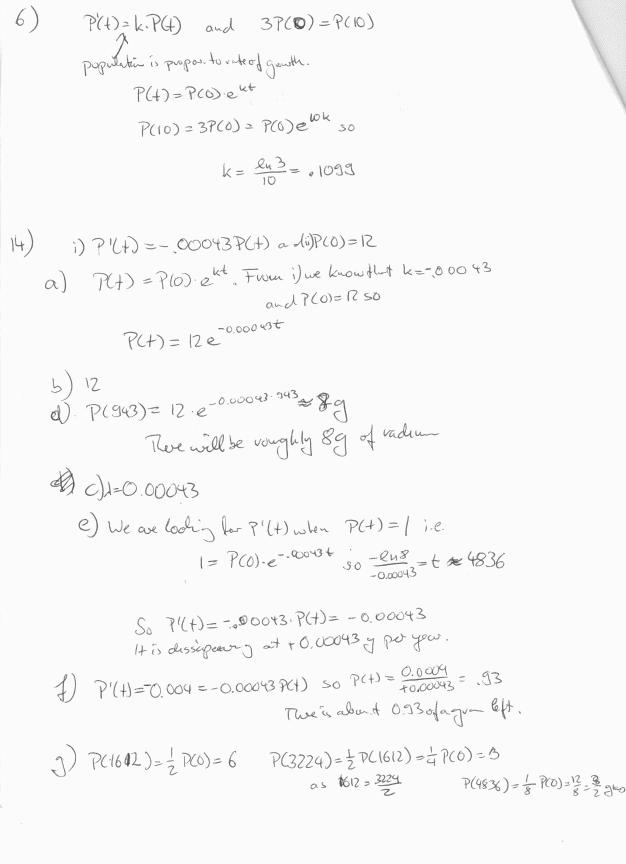 6) P'(t)=k·P(t) and 3P(0)=P(10)
population is propor. to rate of growth.
P(t)=P(0)·e^kt
P(10)=3P(0)=P(0)e^10k so
k = ln 3/10 = .1099
14) i) P'(t)=-.00043P(t) and ii) P(0)=12
a) P(t)=P(0)·e^kt. From i) we know that k=-.00043
and P(0)=12 so
P(t)=12e^-0.00043t
b) 12
d) P(943)=12·e^-0.00043·943 ≈ 8g
There will be roughly 8g of radium
c) λ=0.00043
e) We are looking for P'(t) when P(t)=1 i.e.
1=P(0)·e^-.00043t so -ln8/-0.00043=t≈4836
So P'(t)=-.00043·P(t)=-0.00043
It is dissipearing at +0.00043 g per year.
f) P'(t)=-0.004=-0.00043P(t) so P(t)=0.0004/+0.00043=.93
There is about 0.93 of a gram left.
g) P(1612)=1/2 P(0)=6 P(3224)=1/2 P(1612)=1/4 P(0)=3
as 1612=3224/2 P(4836)=1/8 P(0)=12/8=3/2